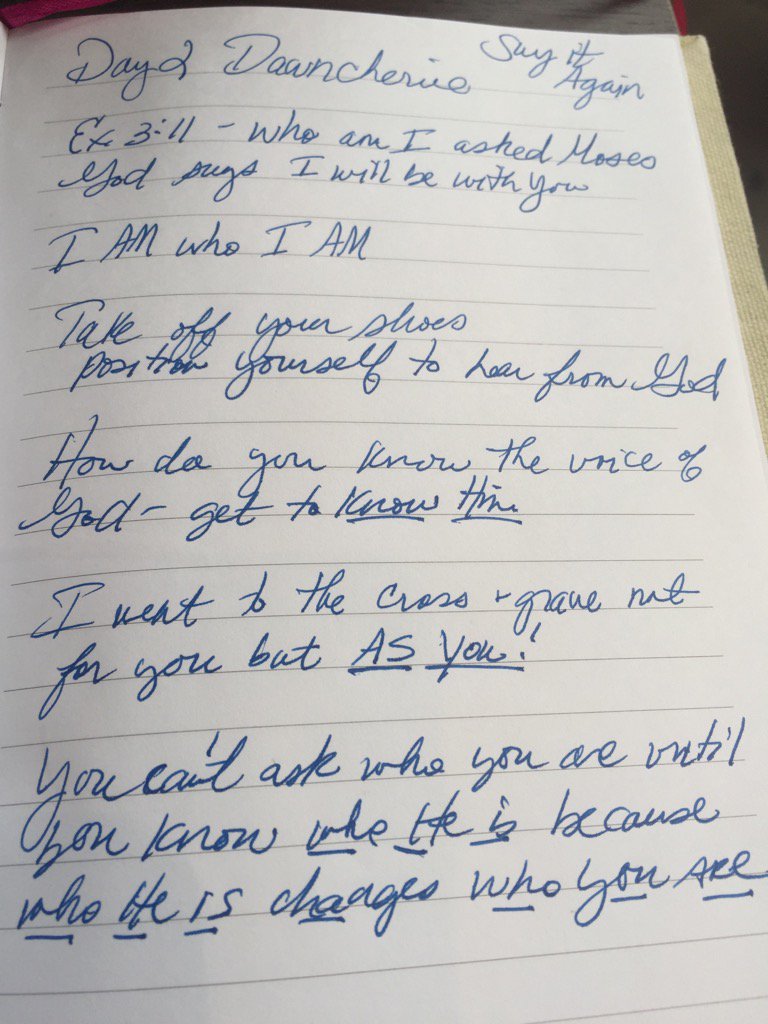 Day 2 Dawncherie Say it Again
Ex 3:11 - who am I asked Moses
God says I will be with you
I AM who I AM
Take off your shoes
position yourself to hear from God
How do you know the voice of
God - get to know Him
I went to the cross + grave not
for you but AS You!
You can't ask who you are until
you know who He is because
who He is changes who you are